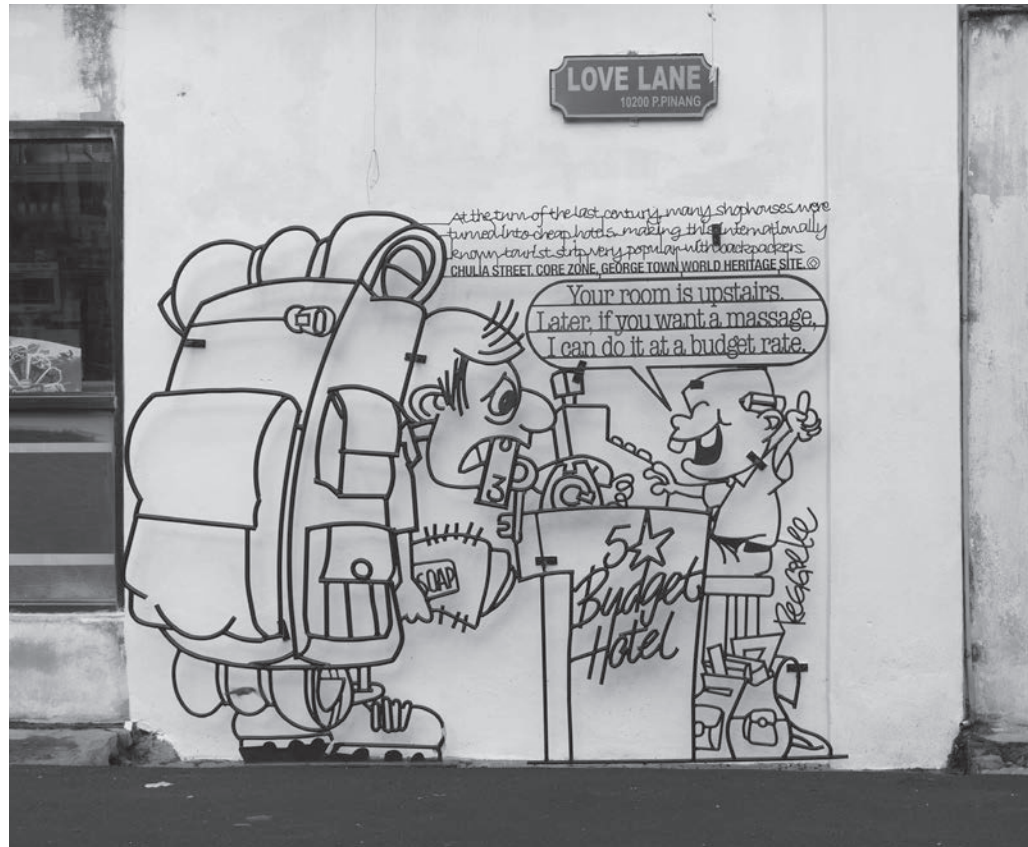 LOVE LANE
10200 P.PINANG
At the turn of the last century, many shophouses were
turned into cheap hotels making this internationally
known tourist strip very popular with backpackers.
CHULIA STREET. CORE ZONE, GEORGE TOWN WORLD HERITAGE SITE.
Your room is upstairs.
Later, if you want a massage,
I can do it at a budget rate.
3
SOAP
5
Budget
Hotel
REGGIE LEE